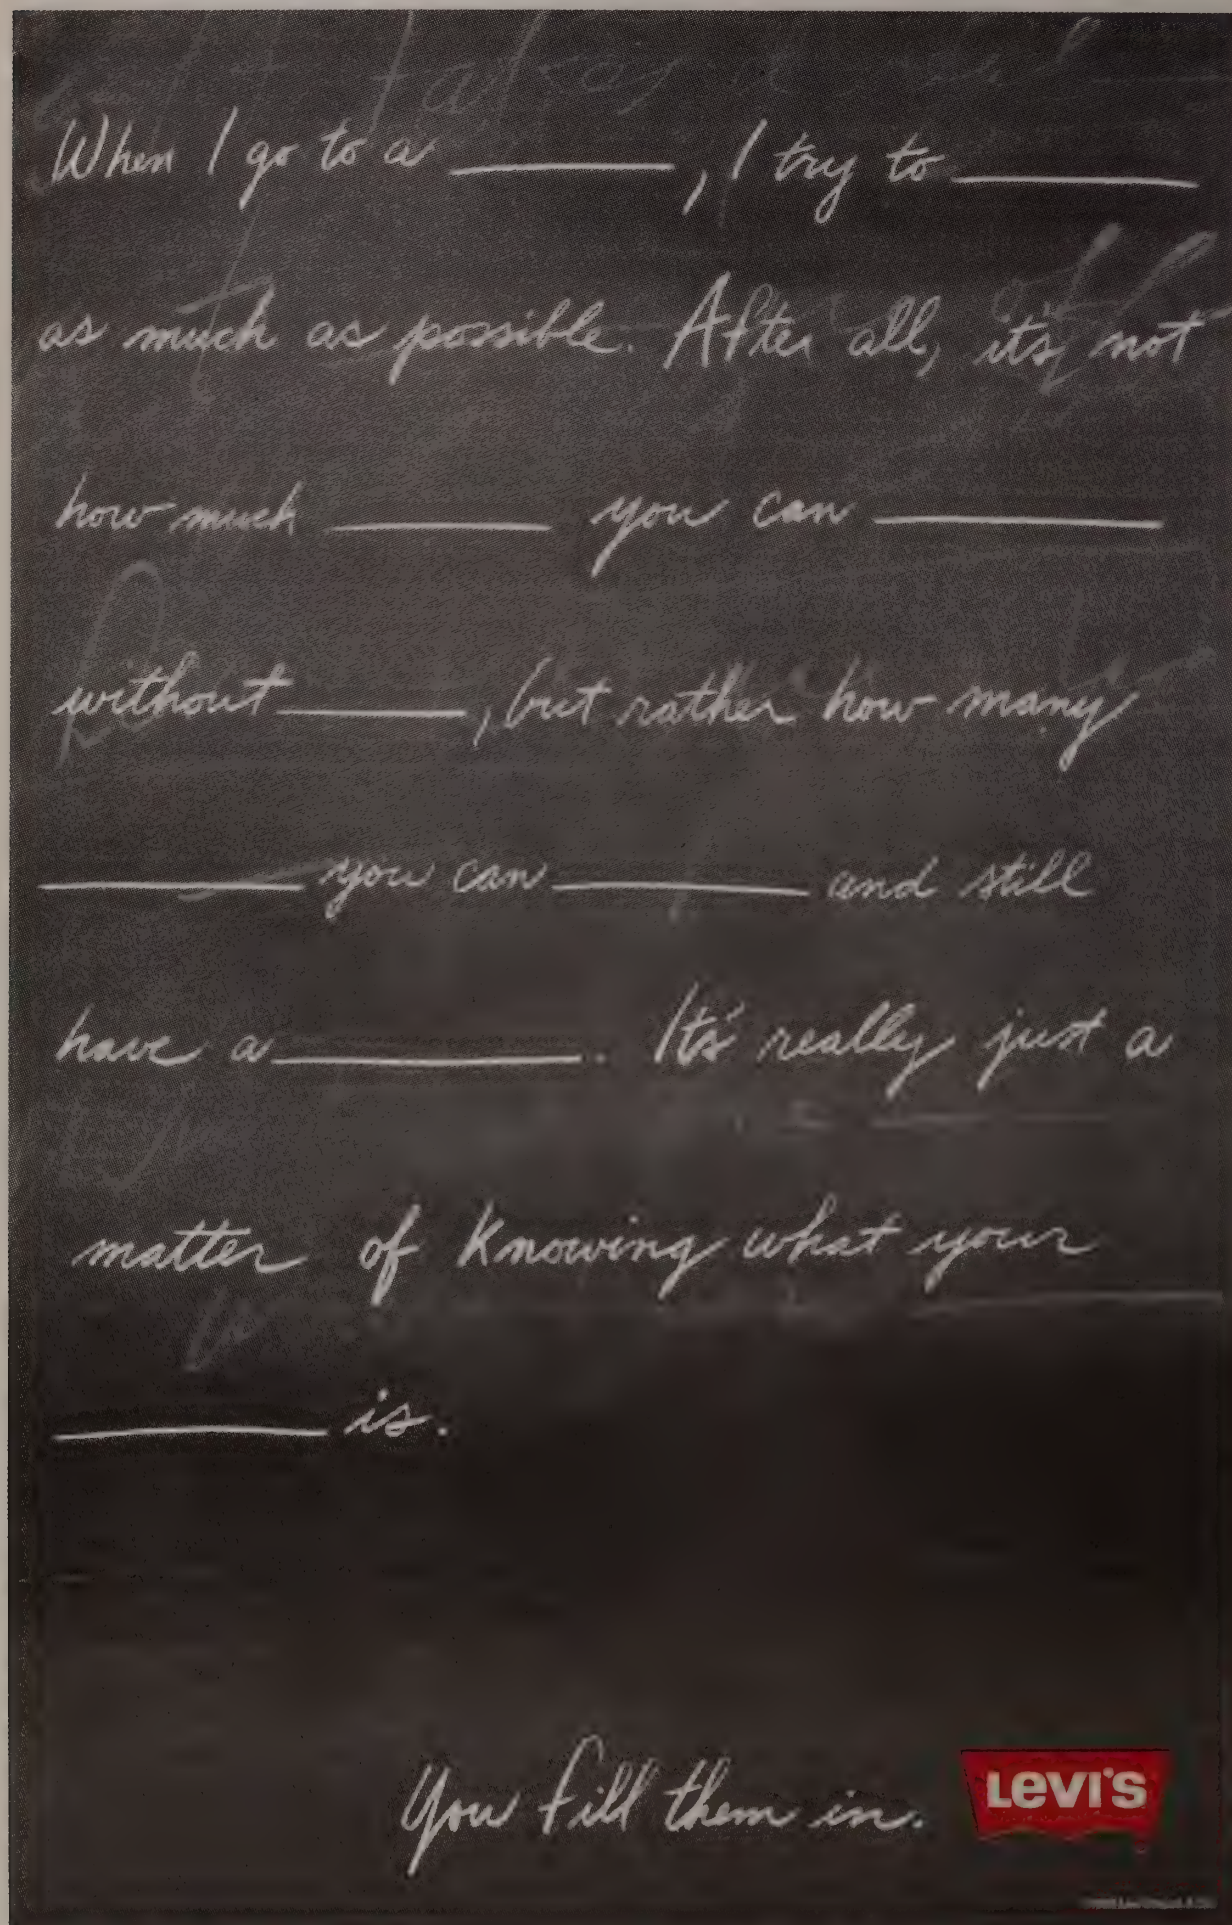 When I go to a ________, I try to ________
as much as possible. After all, its not
how much ________ you can ________
without ________, but rather how many
________ you can ________ and still
have a ________. It's really just a
matter of knowing what your
________ is.
You fill them in.
LEVI'S